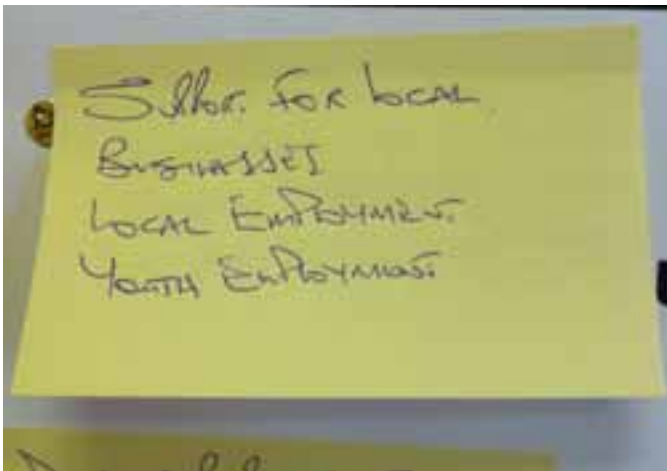 Suppor. For Local
Businesses
Local Employment
Youth Employment